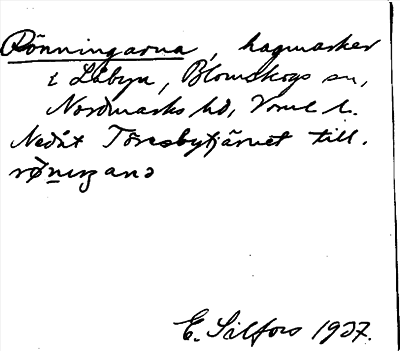 Rönningarna, hagmarker
i Låbyn, Blomskogs sn,
Nordmarks hd, Vrml l.
Nedåt Töresbytjärnet till.
rønıŋana
E. Silfors 1937.